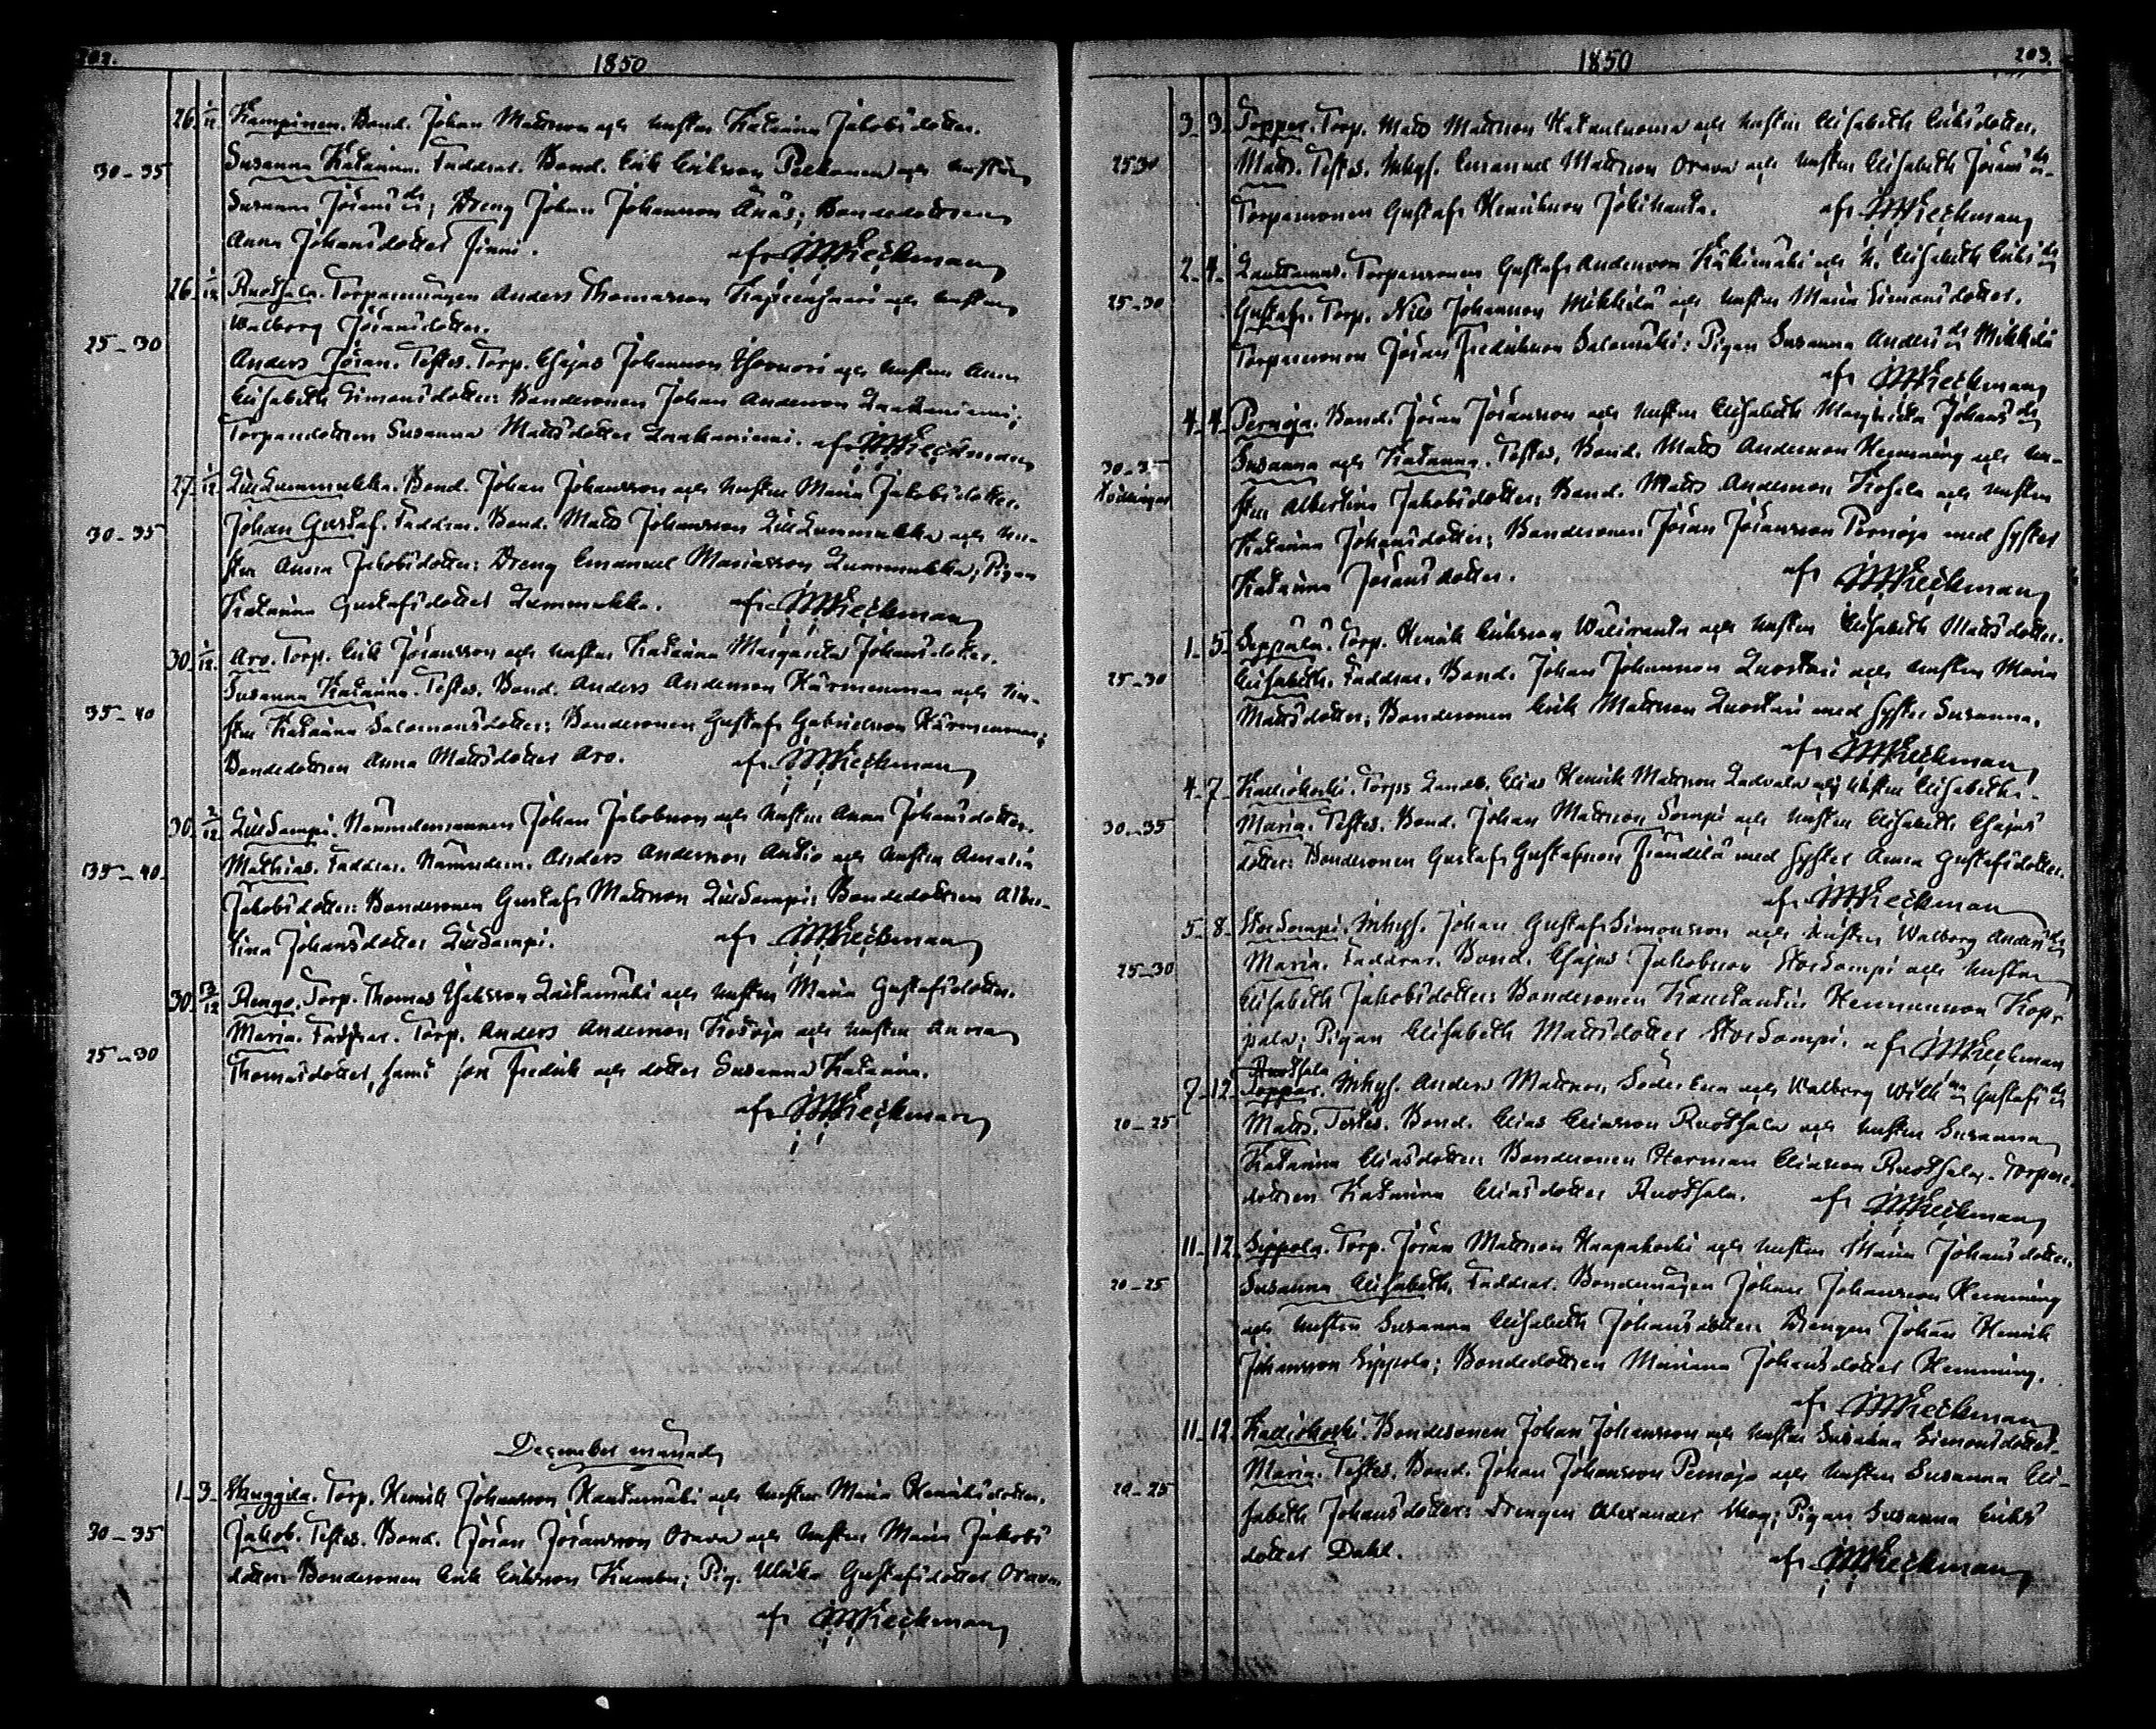 202.
1850
26. 1/12. Kampinen. Bond. Johan Mattsson och hustru Katarina Jakobsdotter.
30-35 Susanna Katarina. Faddrar. Bond. Erik Eriksson Pelkonen och hustru
Susanna Jöransdr; Dreng Johan Johansson Änäs; Bondedottren
Anna Johansdotter Finni. af
26 1/12 Ruotsala. Torparemågen Anders Thomasson och hustru
Walborg Jöransdotter.
25-30
Anders Jöran. Testes. Torp. Esajas Johansson och hustru Anna
Elisabeth Simonsdotter: Bondesonen Johan Andersson Laakaniemi;
Torparedottren Susanna Mattsdotter Laakaniemi. af
27. 1/12. LillLummukka. Bond. Johan Johansson och hustru Maria Jakobsdotter.
30-35 Johan Gustaf. Faddrar. Bond. Matts Johansson LillLummukka och hu-
stru Anna Jakobsdotter: Dreng Emanuel Mariasson Lummukka; Pigan
Katarina Gustafsdotter Lummukka. af
30. 1/12. Aro. Torp. Erik Jöransson och hustru Katarina Margareta Johansdotter.
35-40 Susanna Katarina. Testes. Bond. Anders Andersson Härmenmaa och hu-
stru Katarina Salomonsdotter: Bondesonen Gustaf Gabrielsson Härmenmaa;
Bondedottren Anna Mattsdotter Aro. af
30. 2/12 LillSampi. Nämndemannen Johan Jakobsson och hustru Anna Johansdotter.
35-40. Mathias. Faddrar. Nämndem. Anders Andersson Autio och hustru Amalia
Jakobsdotter: Bondesonen Gustaf Mattsson LillSampi; Bondedottren Alber-
tina Johansdotter LillSampi. af
30. /12 Rengo. Torp. Thomas Isaksson och hustru Maria Gustafsdotter.
25-30 Maria. Faddrar. Torp. Anders Andersson och hustru Anna
Thomasdotter, samt son Fredrik och dotter Susanna Katarina.
af
December månad
1-3- Skuggila. Torp. Henrik Johansson Hautamäki och hustru Maria Henriksdotter.
30-35 Jakob. Testes. Bond. Jöran Jöransson Orava och hustru Maria Jakobs
dotter: Bondesonen Erik Eriksson; Pig. Ulrika Gustafsdotter Orava.
af
1850
203.
3-3. Toppar. Torp. Matts Mattsson och hustru Elisabeth Eriksdotter.
25-30 Matts. Testes. Inhys. Emanuel Mattsson Orava och hustru Elisabeth Jöransdr.
Torparesonen Gustaf Henriksson. af
2-4- Lauttamus. Torparesonen Gustaf Andersson och h. Elisabeth Eriksdr
25-30 Gustaf. Torp. Nils Johansson Mikkilä och hustru Maria Simonsdotter.
Torparesonen Jöran Fredriksson Salomäki: Pigan Susanna Andersdr Mikkilä
af
4-4. Pernoja. Bond. Jöran Jöransson och hustru Elisabeth Margareta Johansdr
30-35 Susanna och Katarina. Testes. Bond. Matts Andersson Hemming och hu-
stru Albertina Jakobsdotter; Bond. Matts Andersson Koskela och hustru
Katarina Johansdotter; Bondesonen Jöran Jöransson Pernoja med syster
Katarina Jöransdotter. af
1-5- Seppälä. Torp. Henrik Eriksson Wäliranta och hustru Elisabeth Mattsdotter.
25-30 Elisabeth. Faddrar. Bond. Johan Johansson Luostari och hustru Maria
Mattsdotter; Bondesonen Erik Mattsson Luostari med syster Susanna.
af
4-7- Kalliokoski. Torp. Elias Henrik Mattsson och hustru Elisabeth.
30-35 Maria. Testes. Bond. Johan Mattsson Sampi och hustru Elisabeth Esajas
dotter: Bondesonen Gustaf Gustafsson Frändilä med syster Anna Gustafsdotter.
af
5-8- StorSampi. Inhys. Johan Gustaf Simonsson och hustru Walborg Andersdr
25-30 Maria. Faddrar. Bond. Esajas Jakobsson StorSampi och hustru
Elisabeth Jakobsdotter: Bondesonen Konstantin Hermansson
Pigan Elisabeth Mattsdotter StorSampi. af
Ruotsala
7-12- Toppar. Inhys. Anders Mattsson och Walborg Gustafsdr
20-25 Matts. Testes. Bond. Elias Eliasson Ruotsala och hustru Susanna
Katarina Eliasdotter: Bondesonen Herman Eliasson Ruotsala. Torpare-
dottren Katarina Eliasdotter Ruotsala. af
11-12. Sippola. Torp. Jöran Mattsson Haapakoski och hustru Maria Johansdotter.
20-25 Susanna Elisabeth. Faddrar. Bondemågen Johan Johansson Hemming
och hustru Susanna Elisabeth Johansdotter: Drengen Johan Henrik
Johansson Sippola; Bondedottren Mariana Johansdotter Hemming.
af
11-12. Kalliokoski. Bondesonen Johan Johansson och hustru Susanna Simonsdotter.
20-25 Maria. Testes. Bond. Johan Johansson Pernoja och hustru Susanna Eli-
sabeth Johansdotter: Drengen Alexander Skog; Pigan Susanna Eriks
dotter Dahl. af